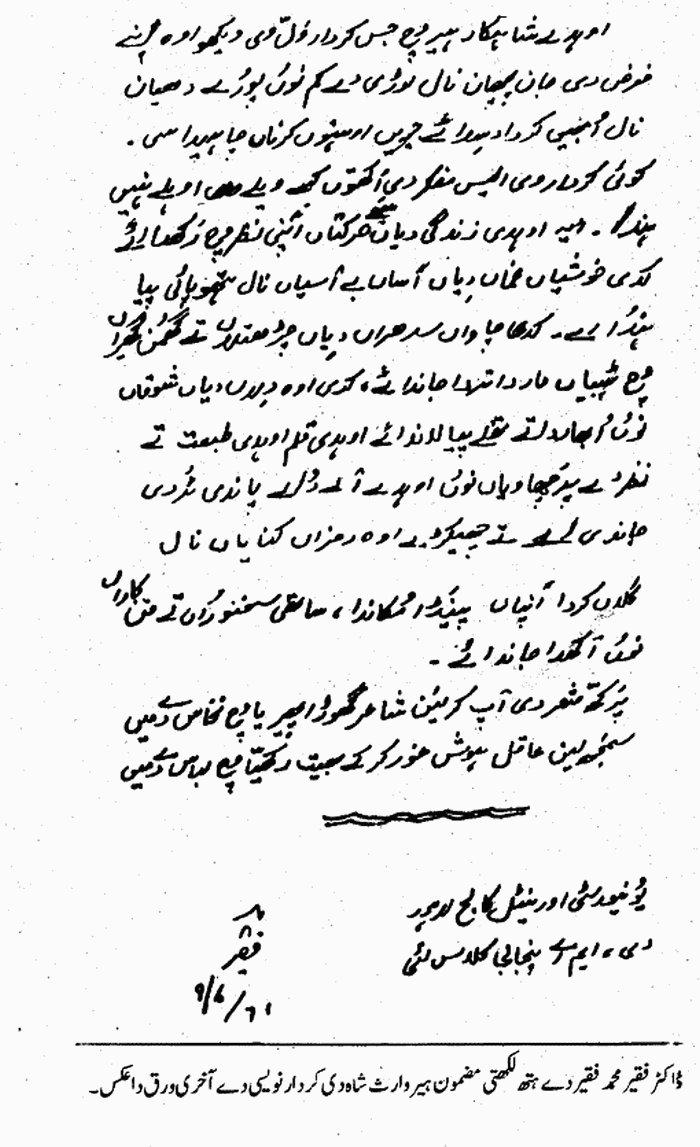 اوہدے شاہکار ہیر وچ جس کردار ول وی دیکھو اوہ اپنے
فرض دی جان پچھان نال لوڑی دے کم نوں پورے دھیان
نال اُنجیی کردا دسدا اے جیویں اوہنوں کرناں چاہیدا سی ۔
کوئی کردار وی ایس مفکر دی اکھوں کسے ویلے وی اوہلے نہیں
ہندا ۔ ایہہ اوہدی زندگی دیاں حرکتاں اپنی نظر وچ رکھدا اے
کدی خوشیاں غماں دیاں آساں بے آسیاں نال گھردا پیا
ہندا اے ۔ کدھا چاواں سدھراں دیاں تے گھمن گھیراں
وچ ٹبیاں ماردا تردا جاندا اے ، کدی اوہ دلاں دیاں شوقاں
نوں اُبھاردا تے تھلے پیا لاندا اے اوہدی قلم اوہدی طبیعت تے
نظر دے پرچھاویاں نوں اوہدے آلے دوالے پاندی ٹردی
جاندی اے تے چھیکڑ اوہ رمزاں کنایاں نال
گلاں کردا آپناں پینڈا مکاندا ، ساتھی سخنوراں تے فنکاراں
نوں آکھدا جاندا اے ۔
پرکھ شعر دی آپ کرلین شاعر گھوڑا پھیریا وچ نخاس دے میں
سمجھ لین عاقل ہوش غور کرکے بھیت رکھیا وچ لباس دے میں
یونیورسٹی اورینٹل کالج لاہور
دی ، ایم اے پنجابی کلاس لئی
فقیر
۹/۶/۷۱
ڈاکٹر فقیر محمد فقیر دے ہتھ لکھتی مضمون ہیر وارث شاہ دی کردار نویسی دے آخری ورق دا عکس ۔